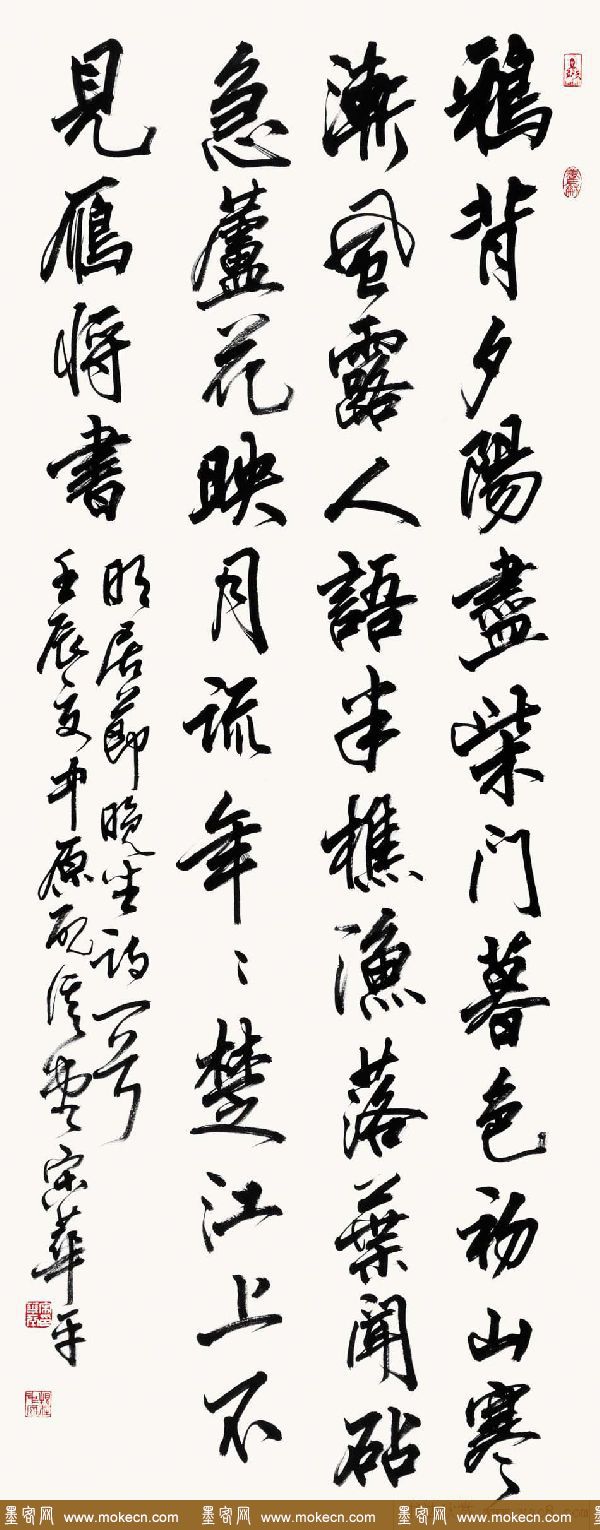 鴉背夕陽盡柴門暮色初山寒
漸風露人語半樵漁落葉聞砧
急蘆花映月疏年〻楚江上不
見雁將書
明居節晚坐詩一首
壬辰夏中原
宋華平
墨客网 www.mokecn.com 墨客网 www.mokecn.com 墨客网 www.mokecn.com